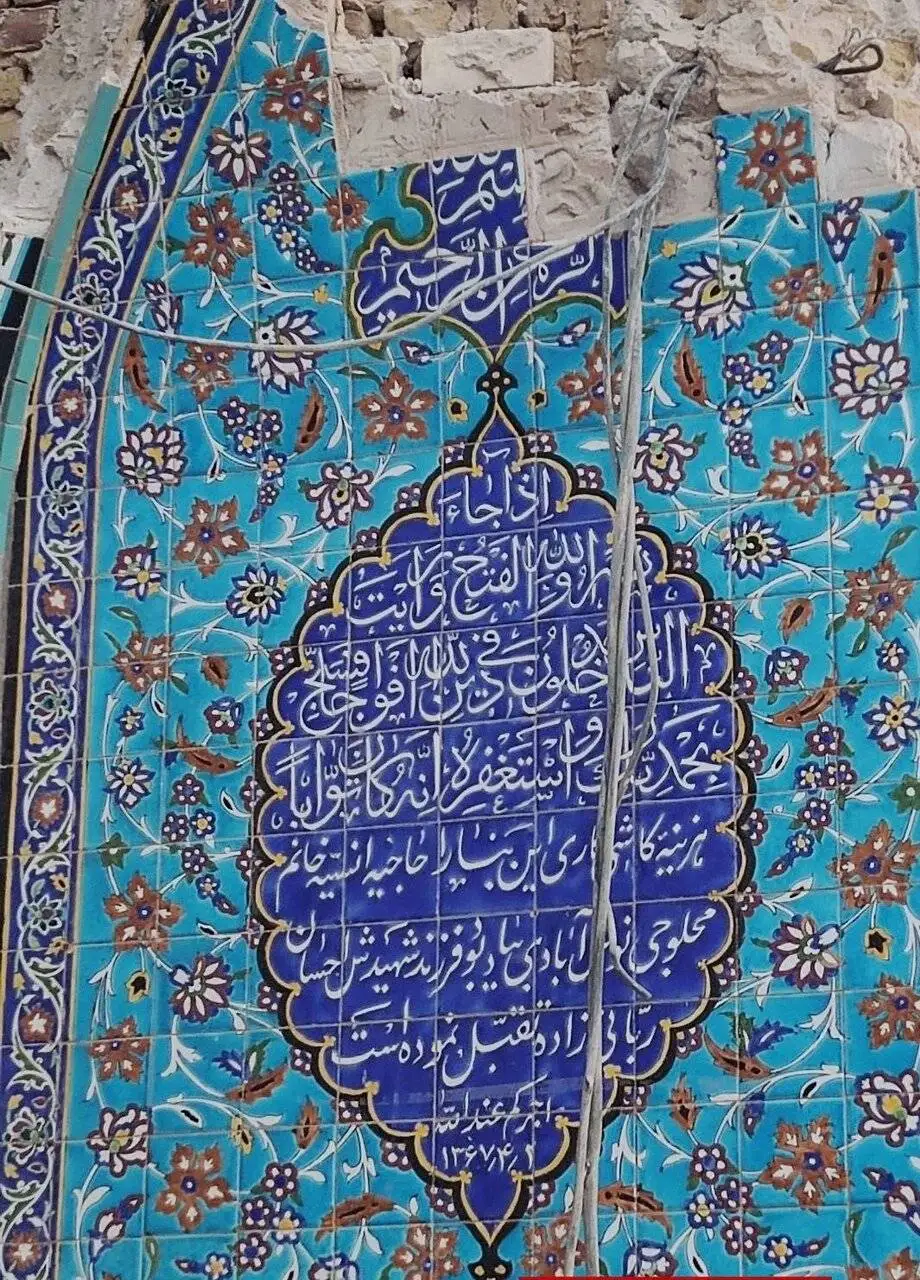 بسم الله
الرحمن الرحیم
اذا جاء
نصر الله و الفتح و رایت
الناس یدخلون فی دین الله افواجا فسبح
بحمد ربک و استغفره انه کان توابا
هزینه کاشی کاری این بنا را حاجیه انسیه خانم
محلوجی آبادی بیاد بود فرزند شهیدش احسان
ربانی زاده تقبل نموده است
اجرکم عند الله
۱۳۶۷٫۴٫۱